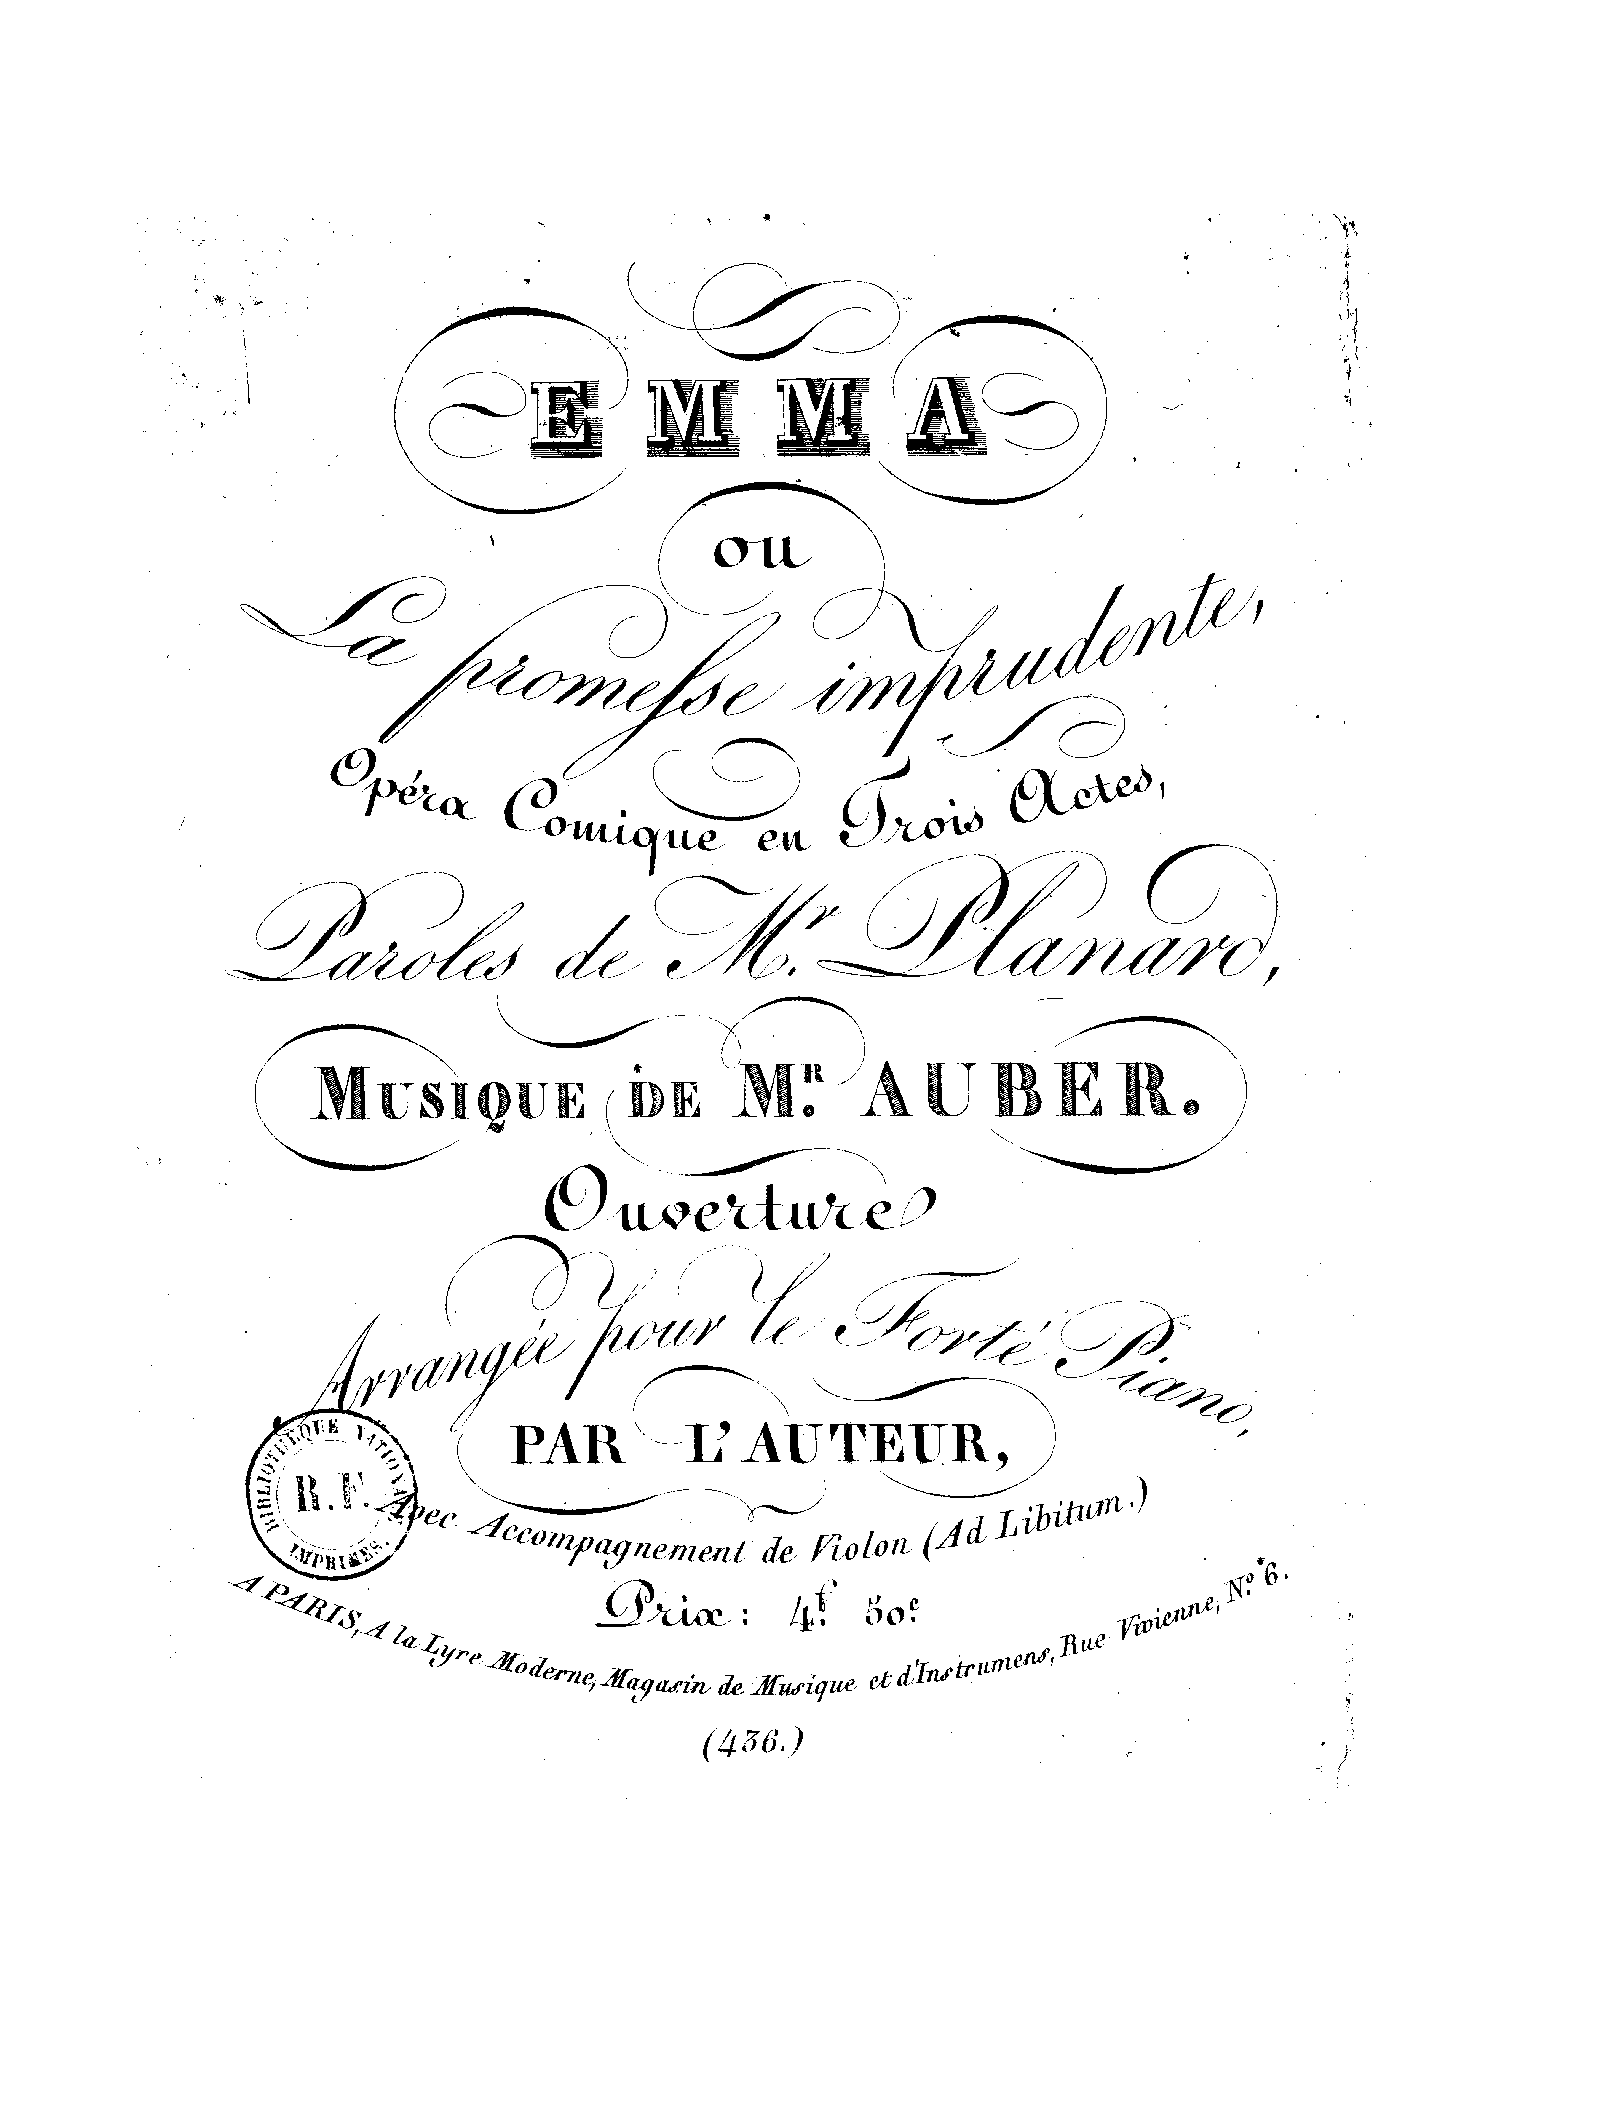 EMMA
ou
La promesse imprudente,
Opéra Comique en Trois Actes,
Paroles de Mr. Planard,
MUSIQUE DE MR. AUBER.
Ouverture
Arrangée pour le Forté Piano,
PAR L'AUTEUR,
BIBLIOTHEQUE NATIONALE
R.F.
IMPRIMES.
Avec Accompagnement de Violon (Ad Libitum.)
Prix: 4f. 50c.
A PARIS, A la Lyre Moderne, Magasin de Musique et d'Instrumens, Rue Vivienne, No. 6.
(436.)